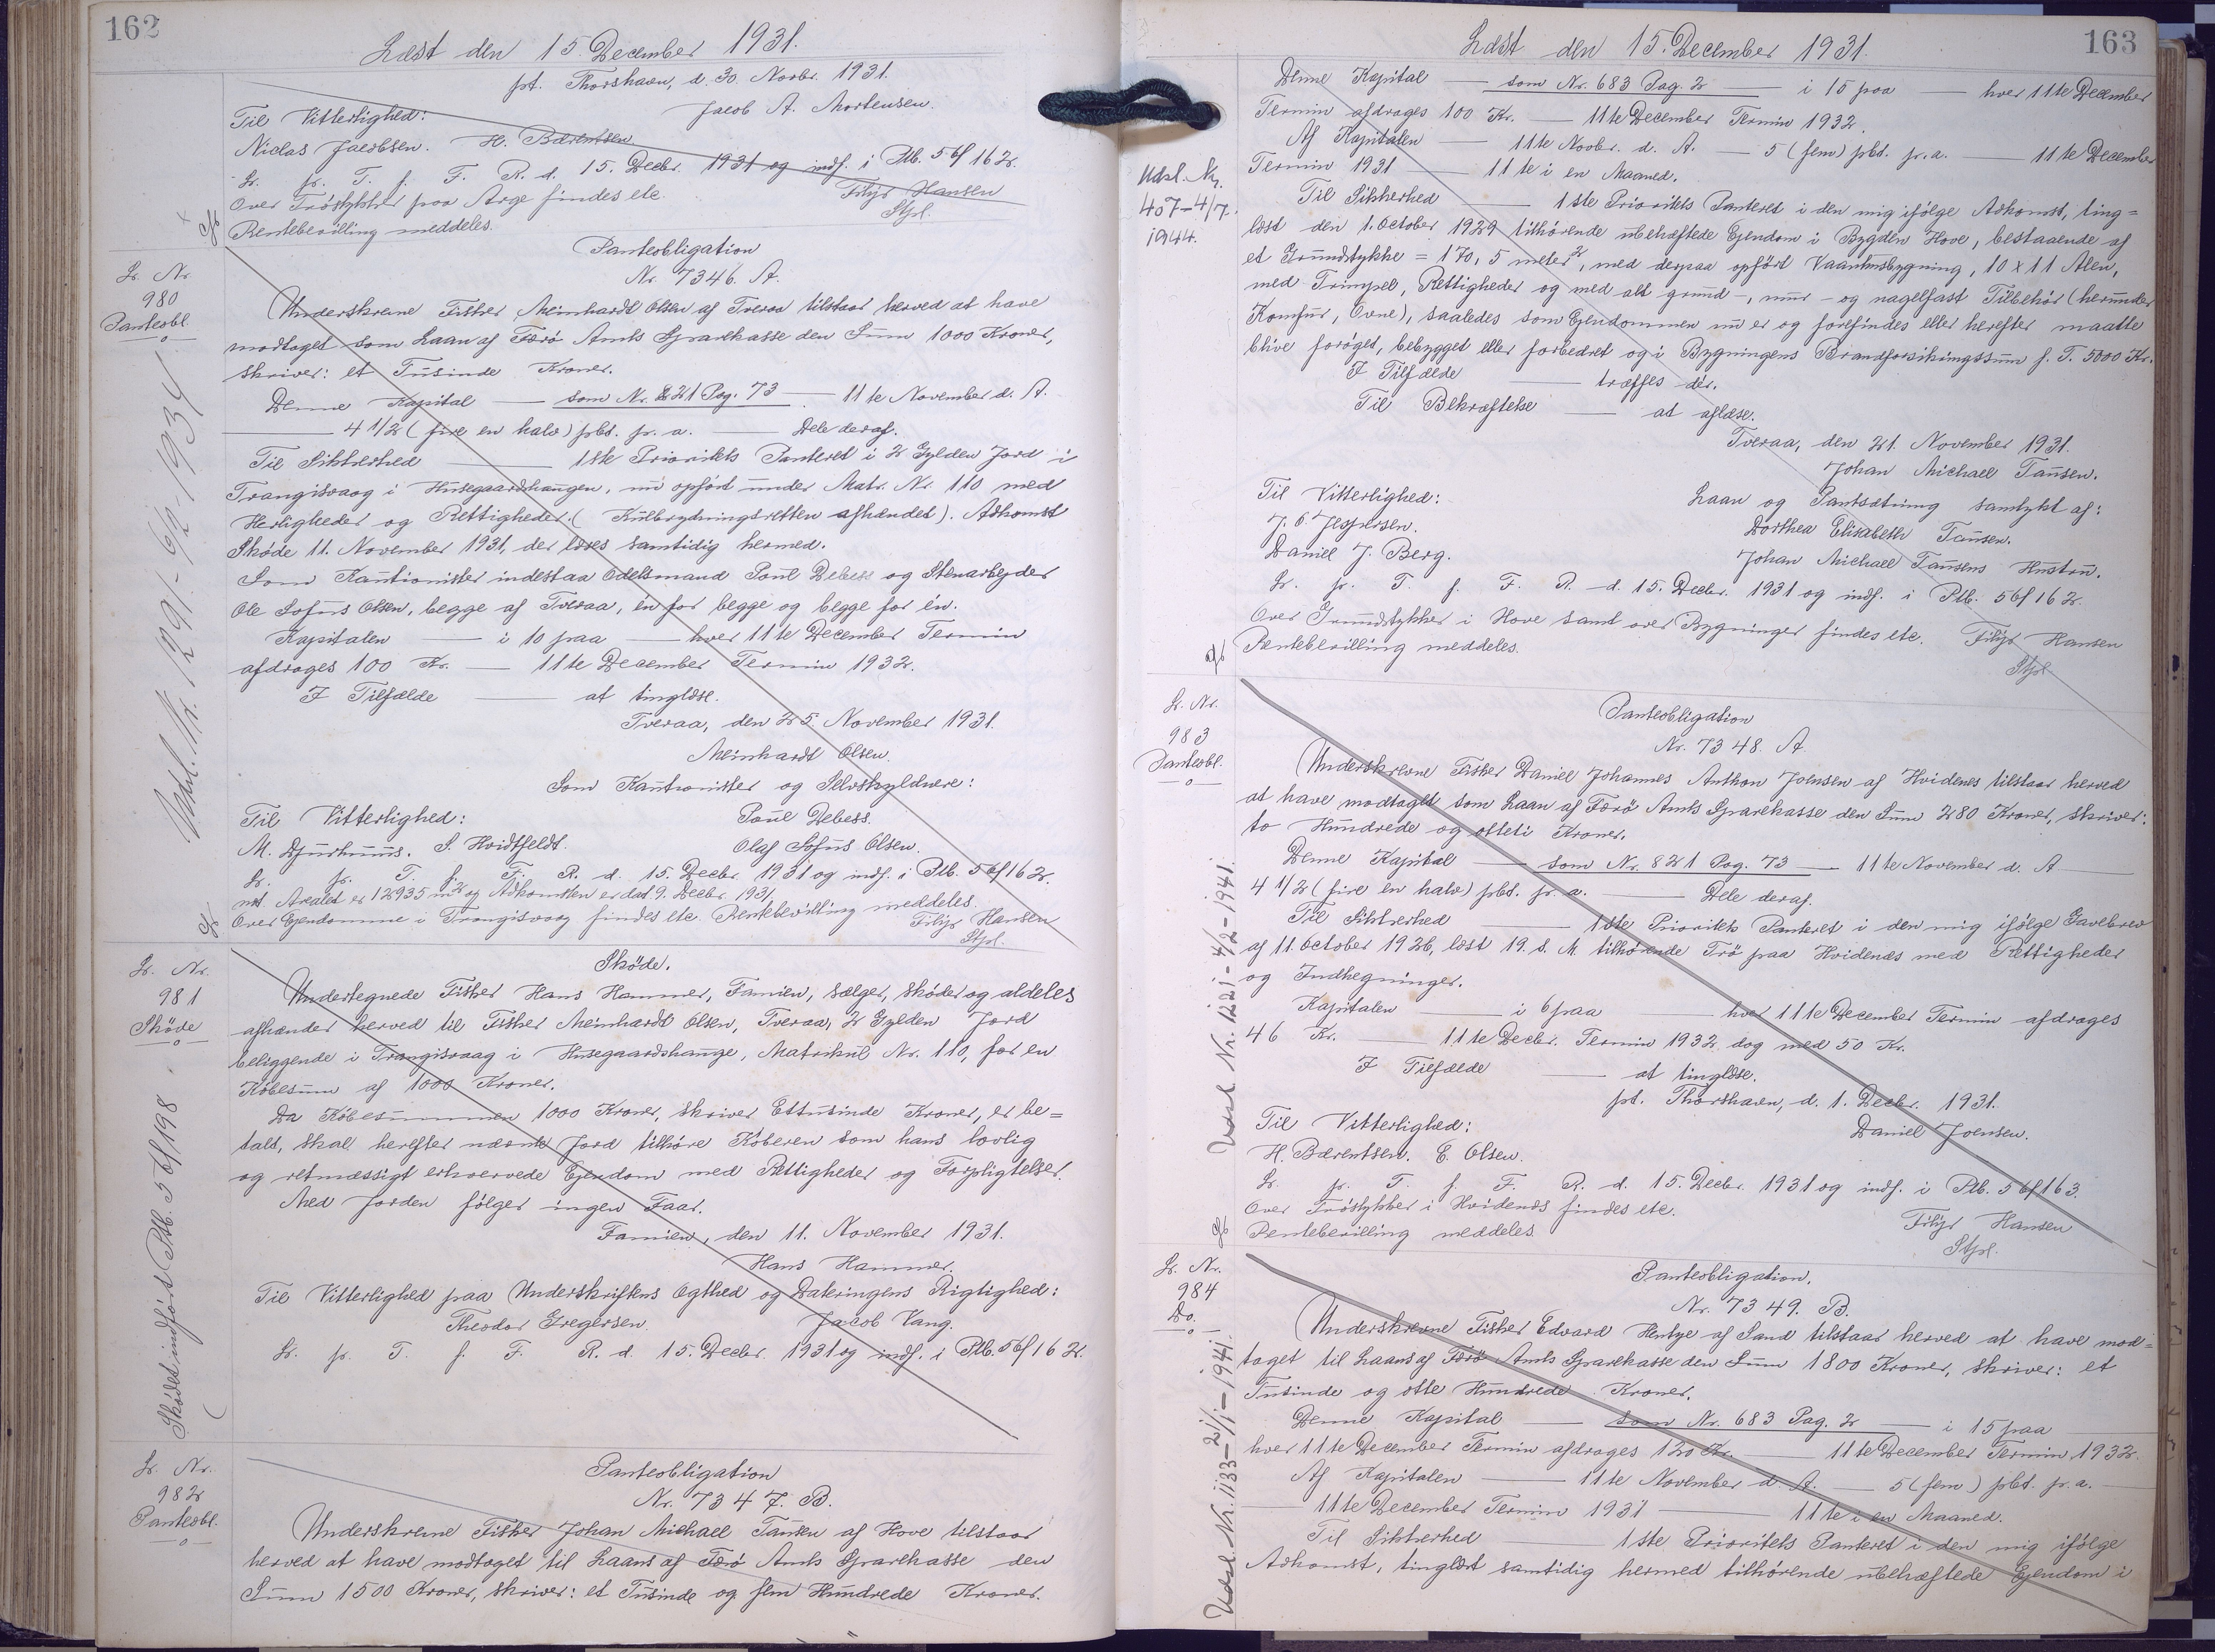 162
Læst den 15. December 1931.
pt. Thorshavn, d. 30. Novbr. 1931.
Jacob A. Mortensen.
Til Vitterlighed:
Niclas Jacobsen. H. Bærentsen.
Lr. pr. T. f. F. R. d. 15. Decbr. 1931 og indf. i Ptb. 5 bf 162.
Over Tröstykker paa Arge findes etc. Filip Hansen
Rentebevilling meddeles. Stfol.
Lr. Nr.
980
Panteobl.
Udsl. Nr. 1291-6/2-1934
Panteobligation
Nr. 7346. A.
Underskrevne Fisker Meinhardt Olsen af Tveraa tilstaar herved at have
modtaget som Laan af Færö Amts Sparekasse den Sum 1000 Kroner,
skriver: et Tusinde Kroner.
Denne Kapital — som Nr. 821 Pag. 73 — 11te November d. A.
— 4 1/2 (fire en halv) pbt. p. a. — Dele deraf.
Til Sikkerhed — 1ste Prioritets Panteret i 2 Gylden Jord i
Trangisvaag i Husegaardshaugen, nu opfört under Matr. Nr. 110 med
Herligheder og Rettigheder. (Kulbrydningsretten afhændet). Adkomst
Sköde 11. November 1931, der læses samtidig hermed.
Som Kautionister indestaa Odelsmand Poul Debess og Stenarbejder
Ole Sofus Olsen, begge af Tveraa, én for begge og begge for én.
Kapitalen — i 10 paa — hver 11te December Termin
afdrages 100 Kr. — 11te December Termin 1932.
I Tilfælde — at tinglæse.
Tveraa, den 25. November 1931.
Meinhardt Olsen.
Som Kautionister og Selvskyldnere:
Til Vitterlighed: Poul Debess.
M. Djurhuus. S. Hvidtfeldt. Olaf Sofus Olsen.
Lr. pr. T. f. F. R. d. 15. Decbr. 1931 og indf. i Ptb. 5 bf 162.
Arealet er 12935 m2 og Adkomsten er dat. 9. Decbr. 1931
Over Ejendomme i Trangisvaag findes etc. Rentebevilling meddeles.
Filip Hansen
Stfol.
Lr. Nr.
981
Sköde
Sködet indfört Ptb. 5 bf 198
Sköde.
Undertegnede Fisker Hans Hammer, Famien, sælger, sköder og aldeles
afhænder herved til Fisker Meinhardt Olsen, Tveraa, 2 Gylden Jord
beliggende i Trangisvaag i Husegaardshauge, Matrikul Nr. 110, for en
Köbesum af 1000 Kroner.
Da Köbesummen 1000 Kroner, skriver Ettusinde Kroner, er be=
talt, skal herefter nævnte Jord tilhöre Köberen som hans lovlig
og retmæssigt erhvervede Ejendom med Rettigheder og Forpligtelser.
Med Jorden fölger ingen Faar.
Famien, den 11. November 1931.
Hans Hammer.
Til Vitterlighed paa Underskriftens Ægthed og Dateringens Rigtighed:
Theodor Gregersen. Jacob Vang.
Lr. pr. T. f. F. R. d. 15. Decbr. 1931 og indf. i Ptb. 5 bf 162.
Lr. Nr.
982
Panteobl.
Panteobligation
Nr. 7347. B.
Underskrevne Fisker Johan Michael Tausen af Hove tilstaar
herved at have modtaget til Laans af Færö Amts Sparekasse den
Sum 1500 Kroner, skriver: et Tusinde og fem Hundrede Kroner.
163
Læst den 15. December 1931.
Denne Kapital — som Nr. 683 Pag. 2 — i 15 paa — hver 11te December
Termin afdrages 100 Kr. — 11te December Termin 1932.
Af Kapitalen — 11te Novbr. d. A. — 5 (fem) pbt. p. a. — 11te December
Termin 1931 — 11te i en Maaned.
Udsl. Nr.
407-4/7.
1944.
Til Sikkerhed — 1ste Prioritets Panteret i den mig ifölge Adkomst, ting=
læst den 1. October 1929 tilhörende ubehæftede Ejendom i Bygden Hove, bestaaende af
et Grundstykke = 170,5 meter2, med derpaa opfört Vaaningsbygning, 10 x 11 Alen,
med Trimpel, Rettigheder og med alt grund-, mur- og nagelfast Tilbehör (herunder
Komfur, Ovne), saaledes som Ejendommen nu er og forefindes eller herefter maatte
blive foröget, bebygget eller forbedret og i Bygningens Brandforsikringssum f. T. 5000 Kr.
I Tilfælde — træffes dér.
Til Bekræftelse — at aflæse.
Tveraa, den 21. November 1931.
Johan Michael Tausen.
Til Vitterlighed: Laan og Pantsætning samtykt af:
J. C. Jespersen. Dorthea Elisabeth Tausen.
Daniel J. Berg. Johan Michael Tausens Hustru.
Lr. pr. T. f. F. R. d. 15. Decbr. 1931 og indf. i Ptb. 5 bf 162.
Over Grundstykker i Hove samt over Bygninger findes etc. Filip Hansen
Rentebevilling meddeles. Stfol
Lr. Nr.
983
Panteobl.
Udsl. Nr. 1221-4/2-1941.
Panteobligation
Nr. 7348. A.
Underskrevne Fisker Daniel Johannes Anthon Joensen af Hvidenes tilstaar herved
at have modtaget som Laan af Færö Amts Sparekasse den Sum 280 Kroner, skriver:
to Hundrede og otteti Kroner.
Denne Kapital — som Nr. 821 Pag. 73 — 11te November d. A —
4 1/2 (fire en halv) pbt. p. a. — Dele deraf.
Til Sikkerhed — 1ste Prioritets Panteret i den mig ifölge Gavebrev
af 11. October 1926, læst 19. s. M. tilhörende Trö paa Hvidenæs med Rettigheder
og Indhegninger.
Kapitalen — i 6 paa — hver 11te December Termin afdrages
46 Kr. — 11te Decbr. Termin 1932 dog med 50 Kr.
I Tilfælde — at tinglæse.
pt. Thorshavn, d. 1. Decbr. 1931.
Til Vitterlighed: Daniel Joensen.
H. Bærentsen. E. Olsen.
Lr. pr. T. f. F. R. d. 15. Decbr. 1931 og indf. i Ptb. 5 bf 163.
Over Tröstykker i Hvidenæs findes etc. Filip Hansen
Rentebevilling meddeles Stfol.
Lr. Nr.
984
Do.
Udsl. Nr. 1133-21/1-1941.
Panteobligation.
Nr. 7349. B.
Underskrevne Fisker Edvard Hentze af Sand tilstaar herved at have mod=
taget til Laans af Færö Amts Sparekasse den Sum 1800 Kroner, skriver: et
Tusinde og otte Hundrede Kroner.
Denne Kapital — som Nr. 683 Pag. 2 — i 15 paa
hver 11te December Termin afdrages 120 Kr. — 11te December Termin 1932.
Af Kapitalen — 11te November d. A. — 5 (fem) pbt. p. a. —
— 11te December Termin 1931 — 11te i en Maaned.
Til Sikkerhed — 1ste Prioritets Panteret i den mig ifölge
Adkomst, tinglæst samtidig hermed tilhörende ubehæftede Ejendom i